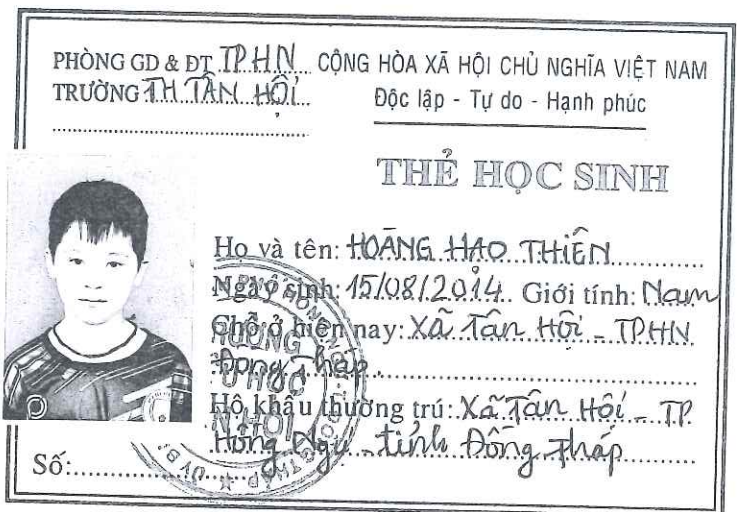 PHÒNG GD & ĐT TPHN
CỘNG HÒA XÃ HỘI CHỦ NGHĨA VIỆT NAM
TRƯỜNG TH TÂN HỘI
Độc lập - Tự do - Hạnh phúc
THẺ HỌC SINH
Họ và tên: HOÀNG HAO THIÊN
Ngày sinh: 15/08/2014 Giới tính: Nam
Chỗ ở hiện nay: Xã Tân Hội - TPHN
Đồng Tháp
Hộ khẩu thường trú: Xã Tân Hội - TP
Hồng Ngự - tỉnh Đồng Tháp
Số: